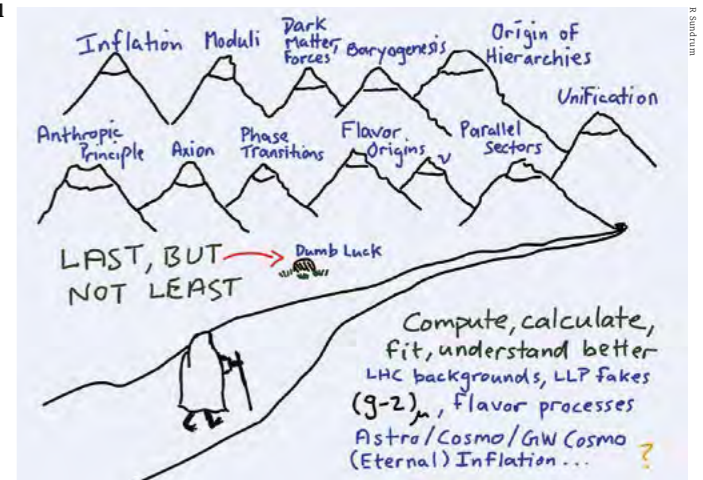 Inflation
Moduli
Dark
Matter,
Forces
Baryogenesis
Origin of
Hierarchies
Unification
Anthropic
Principle
Axion
Phase
Transitions
Flavor
Origins
ν
Parallel
Sectors
LAST, BUT
NOT LEAST
Dumb Luck
Compute, calculate,
fit, understand better
LHC backgrounds, LLP fakes
(g-2)μ, flavor processes
Astro/Cosmo/GW Cosmo
(Eternal) Inflation... ?
R Sundrum